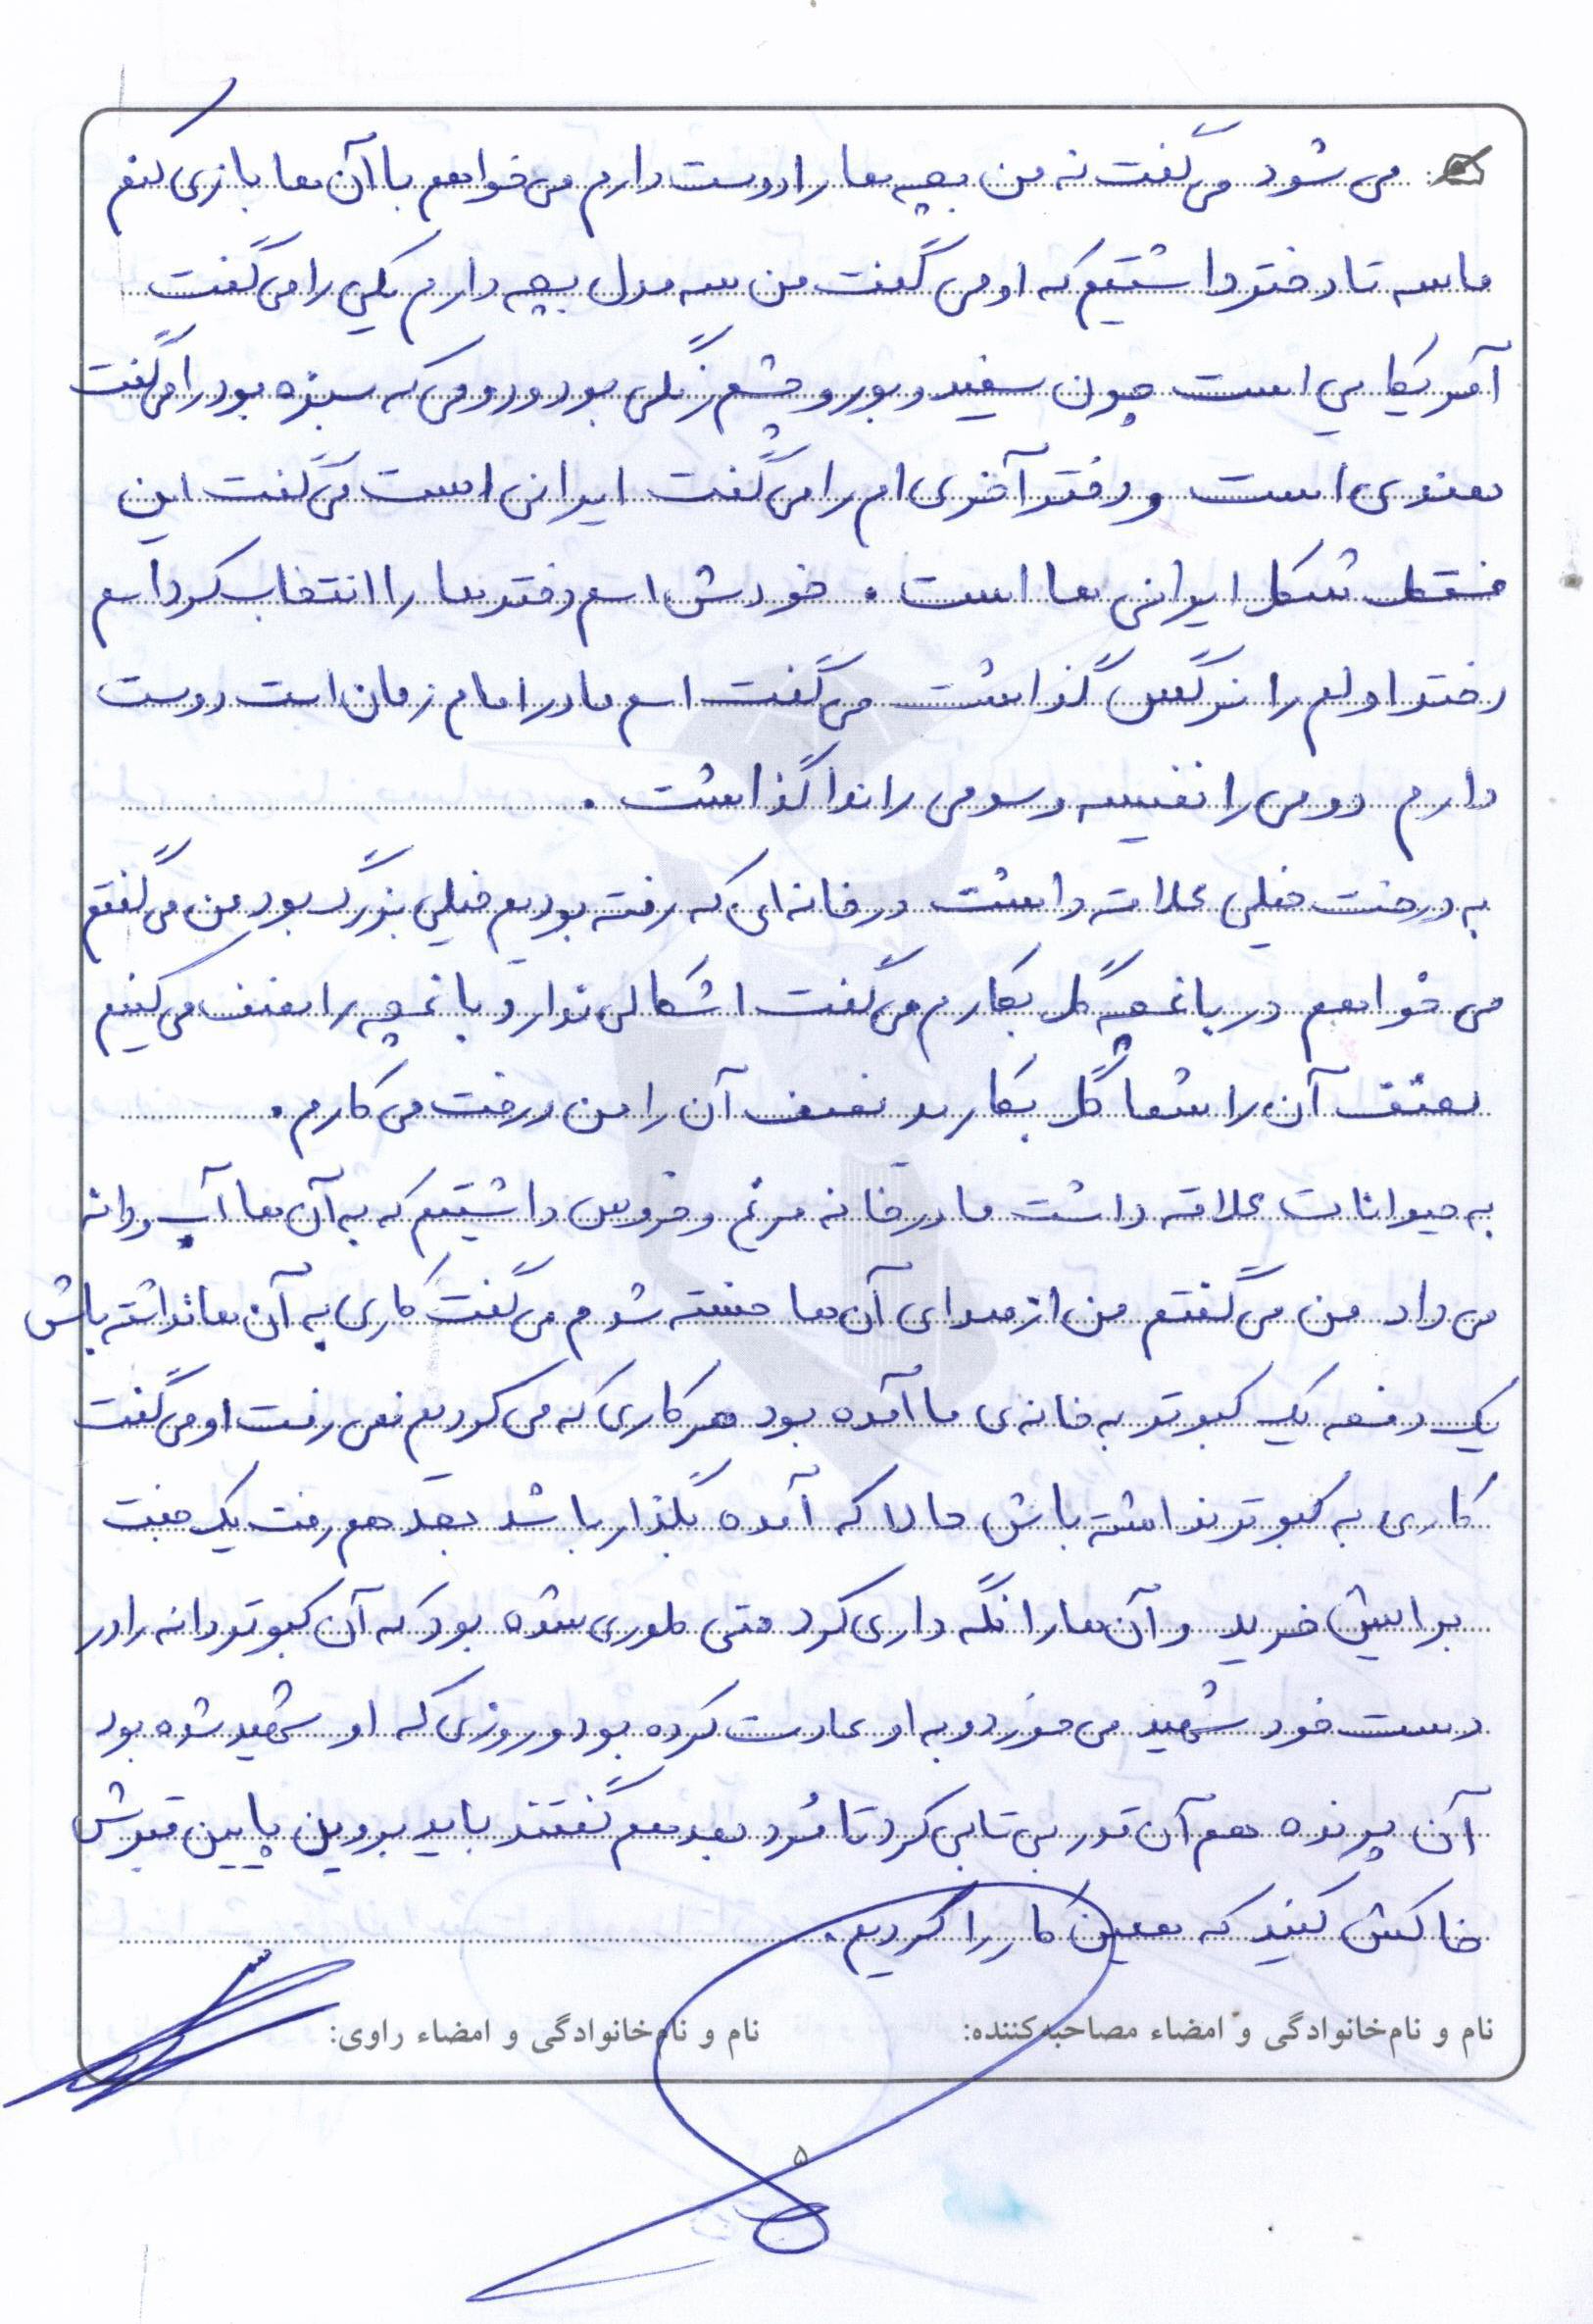 می شود می گفت نه من بچه ها را دوست دارم می خواهم با آن ها بازی کنم
ما سه تا دختر داشتیم که او می گفت من سه مدل بچه دارم یکی را می گفت
آمریکایی است چون سفید و بور و چشم زنگی بود و دومی که سبزه بود را می گفت
هندی است و دختر آخری ام را می گفت ایرانی است می گفت این
شکل ایرانی ها است . خودش اسم دختر ها را انتخاب کرد اسم
دختر اولم را نرگس گذاشت می گفت اسم مادر امام زمان است دوست
دارم دومی را نفیسه و سومی را ندا گذاشت .
به درخت خیلی علاقه داشت در خانه ای که رفته بودیم خیلی بزرگ بود من می گفتم
می خواهم در باغچه گل بکارم می گفت اشکالی ندارد باغچه را نصف می کنیم
نصف آن را شما گل بکارید نصف آن را من درخت می کارم .
به حیوانات علاقه داشت ما در خانه مرغ و خروس داشتیم که به آن ها آب و دانه
می داد من می گفتم من از صدای آن ها خسته شدم می گفت کاری به آن ها نداشته باش
یک دفعه یک کبوتر به خانه ی ما آمده بود هر کاری که می کردیم نمی رفت او می گفت
کاری به کبوتر نداشته باش حالا که آمده بگذار باشد بعد هم رفت یک جفت
برایش خرید و آن ها را نگه داری کرد حتی طوری شده بود که آن کبوتر دانه را در
دست خود شهید می خورد و به او عادت کرده بود و روزی که او شهید شده بود
آن پرنده هم آن قدر بی تابی کرد تا مُرد بعد هم گفتند باید بروین پایین قبرش
خاکش کنید که همین کار را کردیم .
نام و نام‌خانوادگی و امضاء مصاحبه‌کننده: نام و نام‌خانوادگی و امضاء راوی:
۵